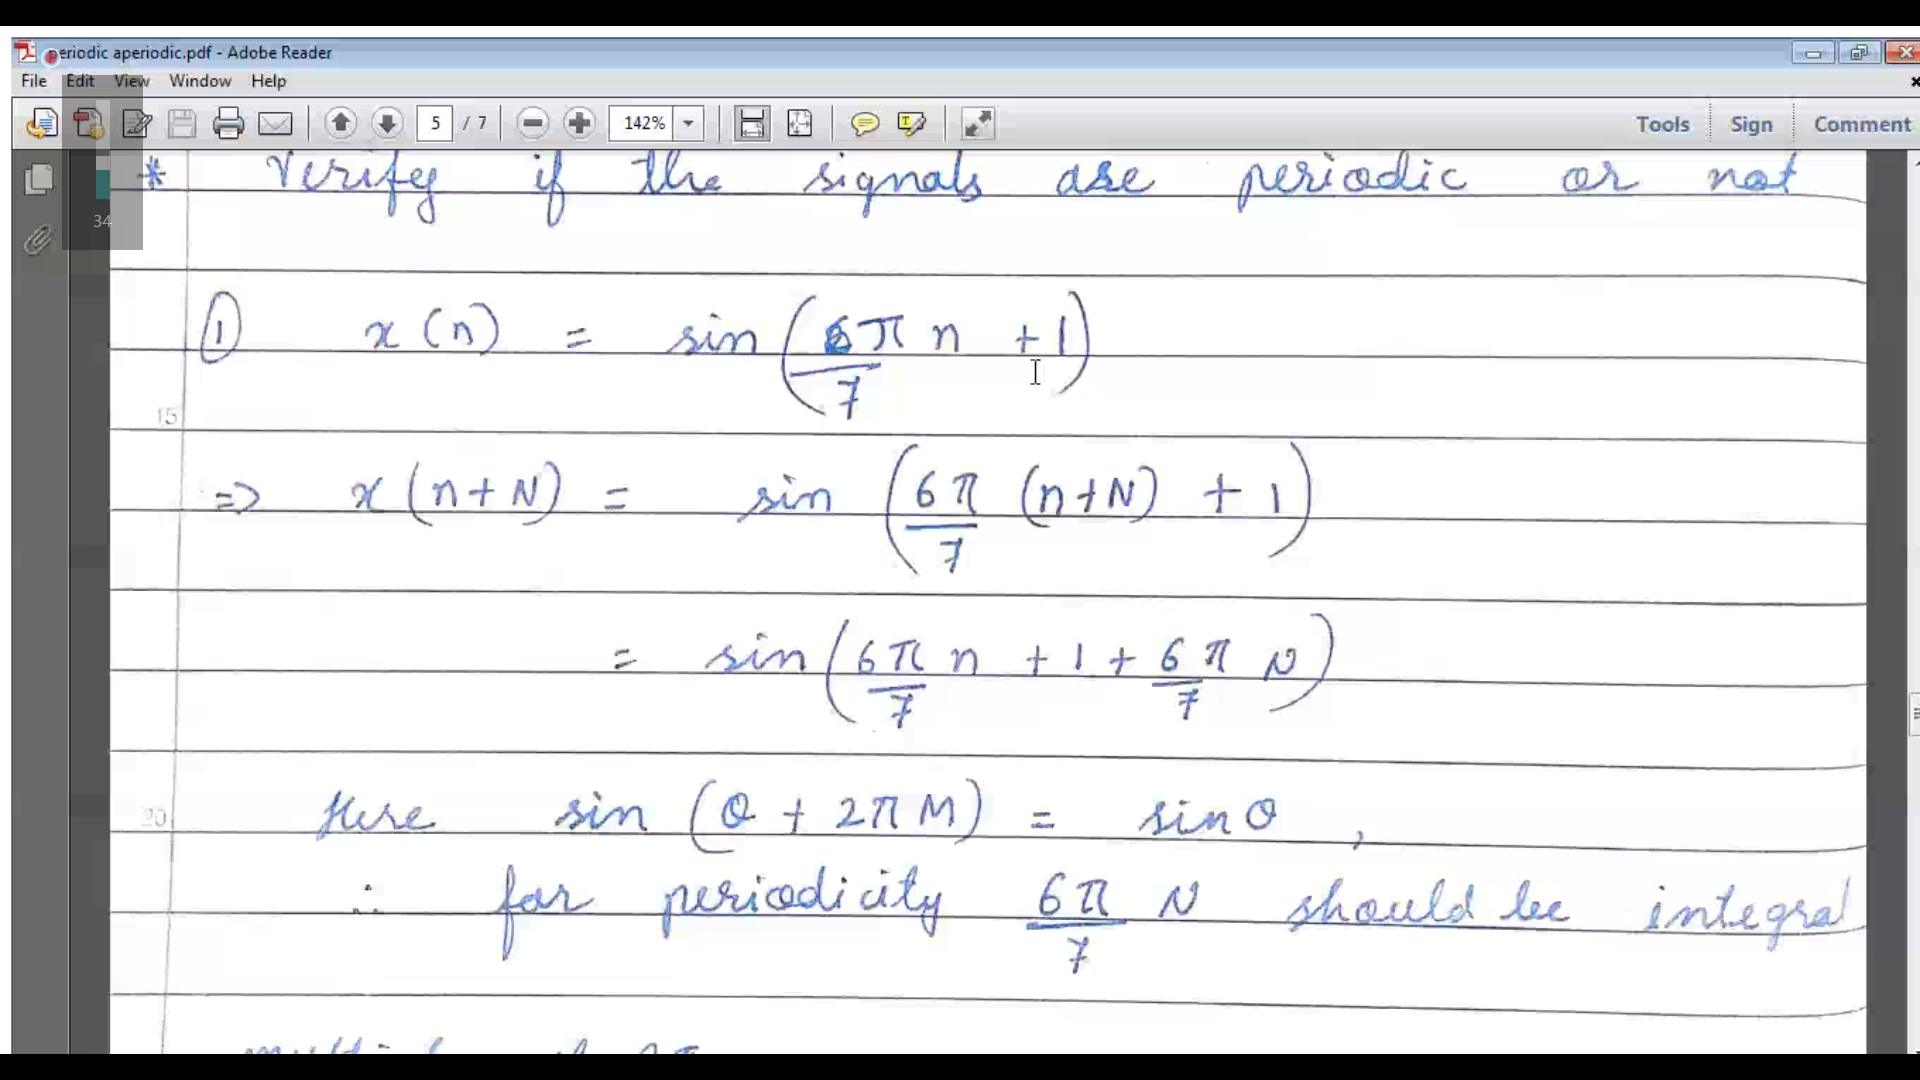 periodic aperiodic.pdf - Adobe Reader
File Edit View Window Help
5 / 7 142% Tools Sign Comment
34
* Verify if the signals are periodic or not
① x(n) = sin(6π/7 n + 1)
15
=> x(n+N) = sin(6π/7 (n+N) + 1)
= sin(6π/7 n + 1 + 6π/7 N)
20
Here sin(θ + 2πM) = sinθ ,
∴ for periodicity 6π/7 N should be integral